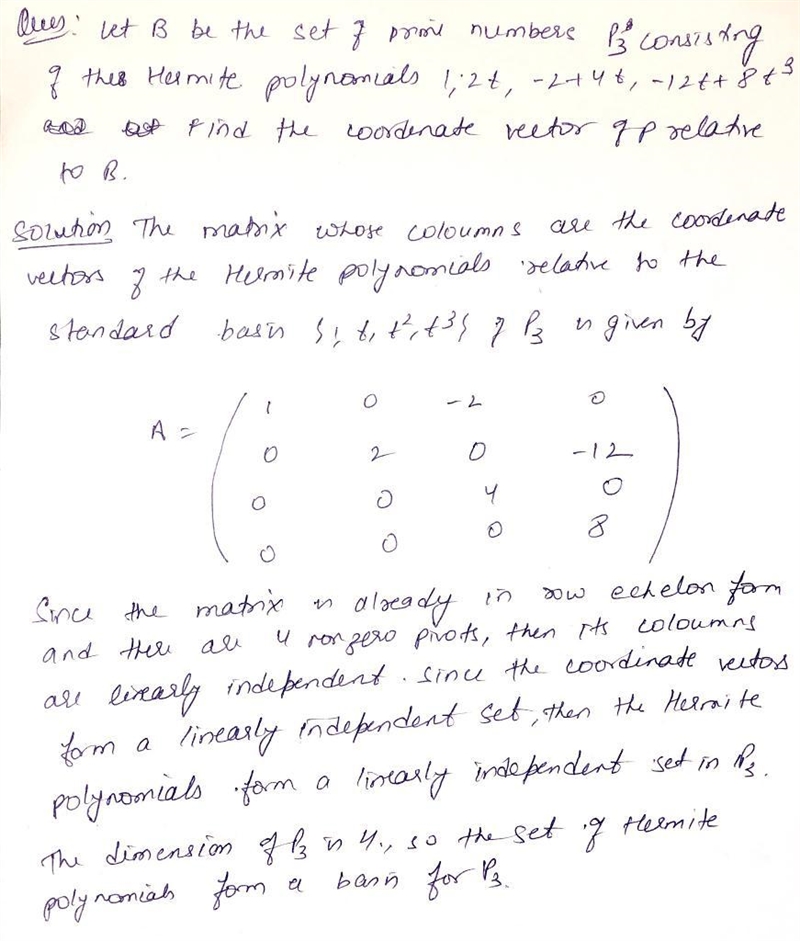 Ques: Let B be the set of prime numbers P3 consisting
of thes Hermite polynomials 1, 2t, -2+4t, -12t+8t³
Find the coordenate vector of P relative
to B.
Solution The matrix whose coloumns are the coordenate
vectors of the Hermite polynomials relative to the
standard basis {1, t, t², t³} of P3 is given by
A = ( 1 0 -2 0
0 2 0 -12
0 0 4 0
0 0 0 8 )
Since the matrix is already in row echelon form
and there are 4 nonzero pivots, then its coloumns
are linearly independent. Since the coordinate vectors
form a linearly independent set, then the Hermite
polynomials form a linearly independent set in P3.
The dimension of P3 is 4., so the set of Hermite
polynomials form a basis for P3.